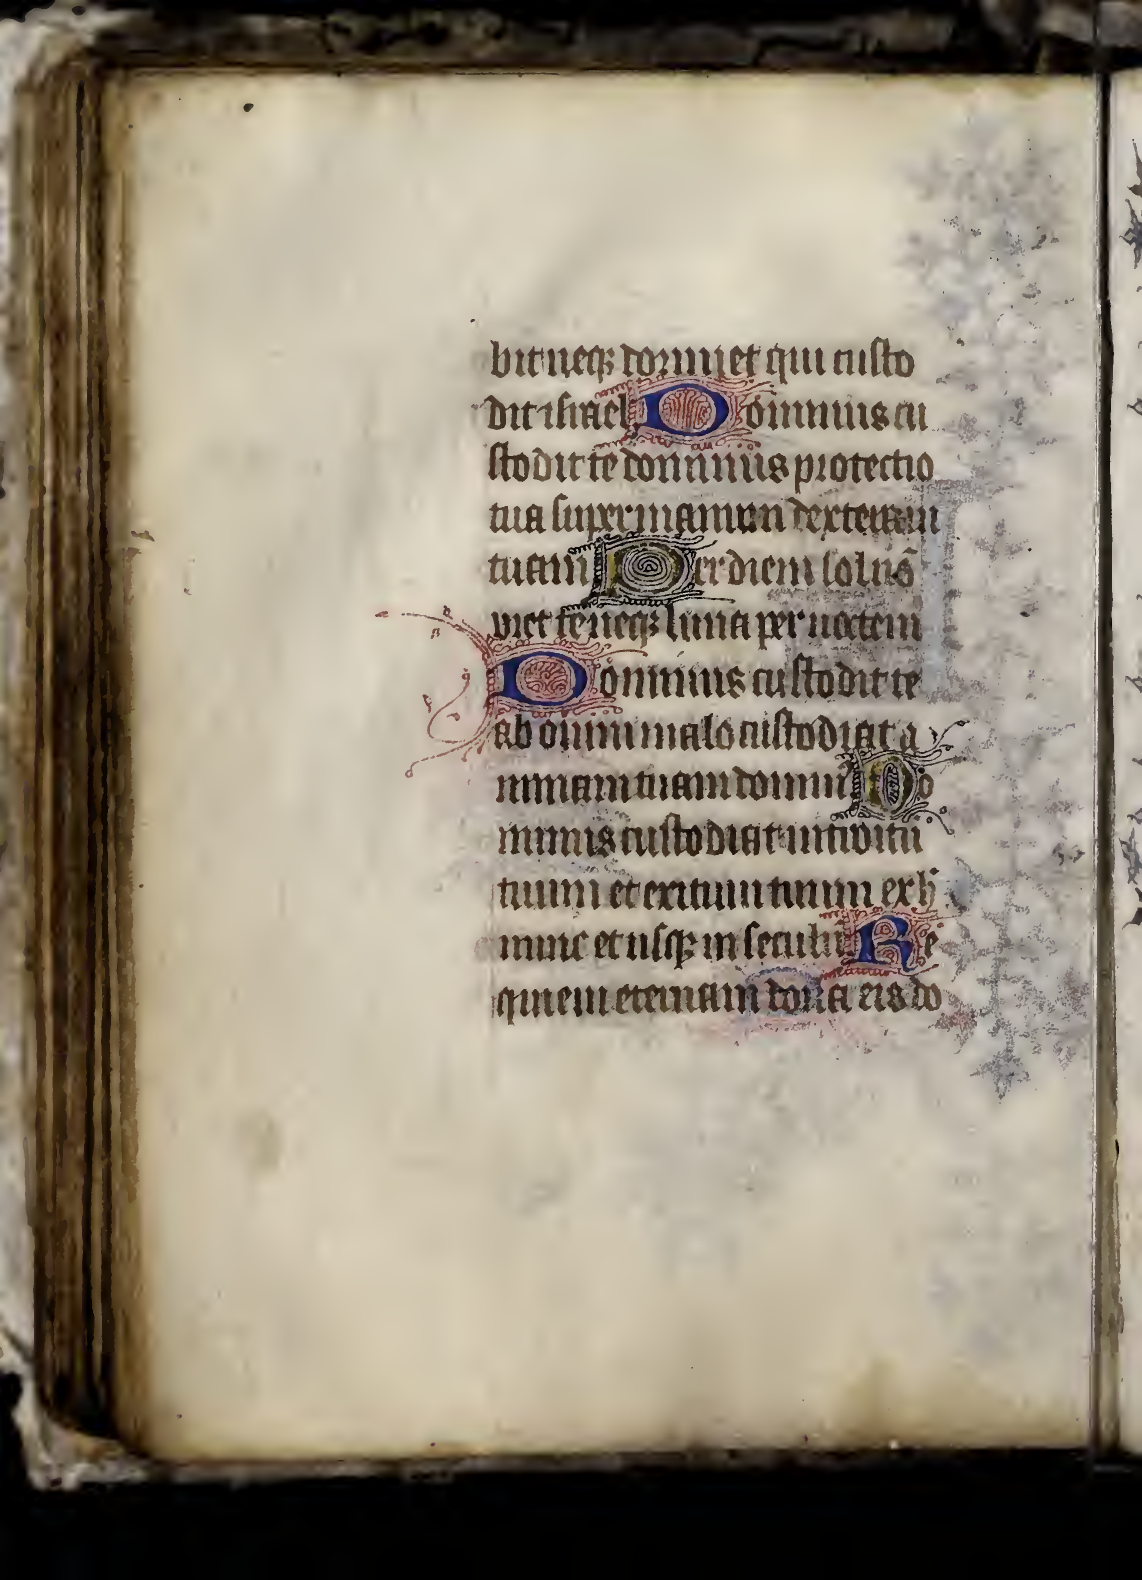 bit neqꝫ dormiet qui custo
dit israel. Dominus cu
stodit te dominus protectio
tua super manum dexteram
tuam Per diem sol nō
uret te neqꝫ luna per noctem
Dominus custodit te
ab omni malo custodiat a
nimam tuam domin᷒ Do
minus custodiat introitū
tuum et exitum tuum ex h̄
nunc et usqꝫ in seculū. Re
quiem eternam dona eis do